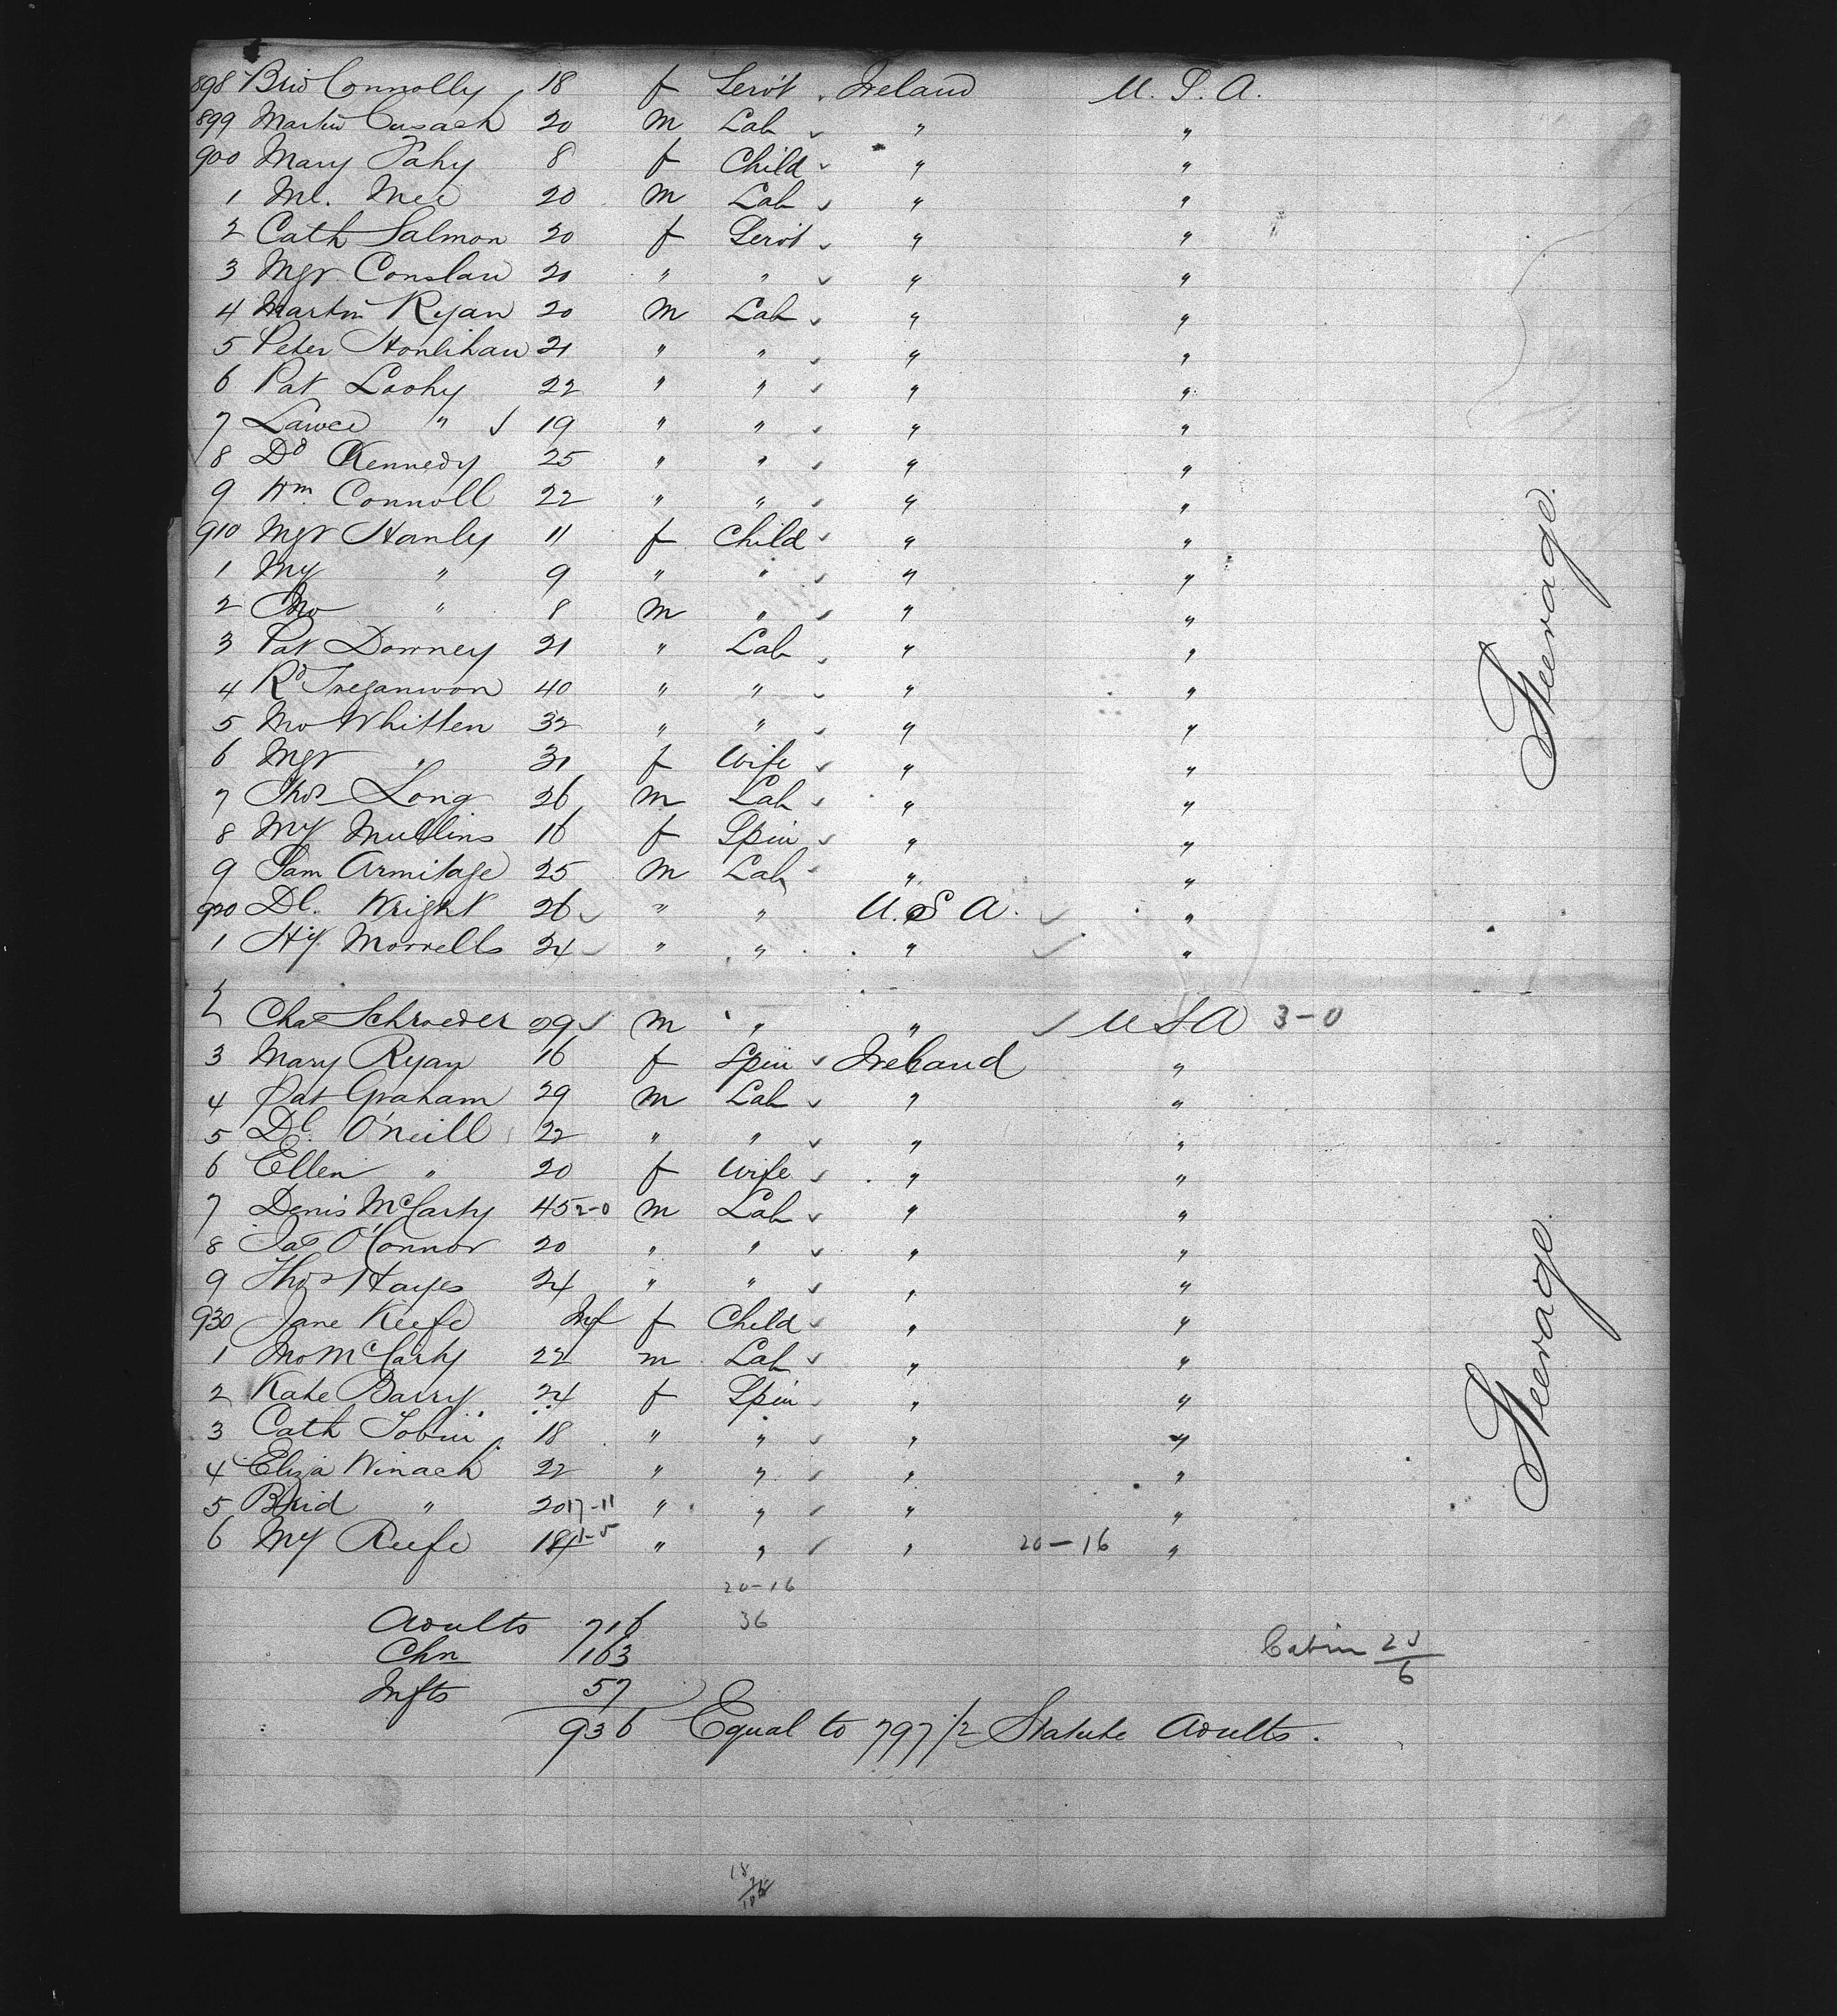 898 Brid Connolly 18 f Servt Ireland U.S.A.
899 Martin Cusack 20 m Lab " "
900 Mary Fahy 8 f Child " "
1 Ml. Mee 20 m Lab " "
2 Cath Salmon 20 f Servt " "
3 Mgt 20 " " " "
4 Martin Ryan 20 m Lab " "
5 Peter Honlihan 21 " " " "
6 Pat Loohy 22 " " " "
7 Lawce " 19 " " " "
8 Dd Kennedy 25 " " " "
9 Wm Connoll 22 " " " "
910 Mgt Hanly 11 f Child " "
1 My " 9 " " " "
2 Jno " 8 m " " "
3 Pat Downey 21 " Lab " "
4 Rd 40 " " " "
5 Jno Whitten 32 " " " "
6 Mgt " 31 f Wife " "
7 Thos Long 26 m Lab " "
8 My Mullins 16 f Spin " "
9 Sam Armitage 25 m Lab " "
920 Dl. Wright 26 " " U.S.A. "
1 Hy Morrells 24 " " " "
2 Chas Schroeder 29 m " " U S A 3-0
3 Mary Ryan 16 f Spin Ireland "
4 Pat Graham 29 m Lab " "
5 Dl. O'Neill 22 " " " "
6 Ellen " 20 f Wife " "
7 Denis McCarty 45 2-0 m Lab " "
8 Jas O'Connor 20 " " " "
9 Thos Hayes 24 " " " "
930 Jane Keefe Inf f Child " "
1 Jno McCarty 22 m Lab " "
2 Kate Barry 24 f Spin " "
3 Cath Tobin 18 " " " "
4 Eliza Winach 22 " " " "
5 Brid " 20 17-11 " " " "
6 My Keefe 18 " " " 20-16 "
20-16
Adults 716 36
Chn 163
Infts 57
936 Equal to 797 1/2 Statute Adults.
Cabin 6
Steerage.
Steerage.